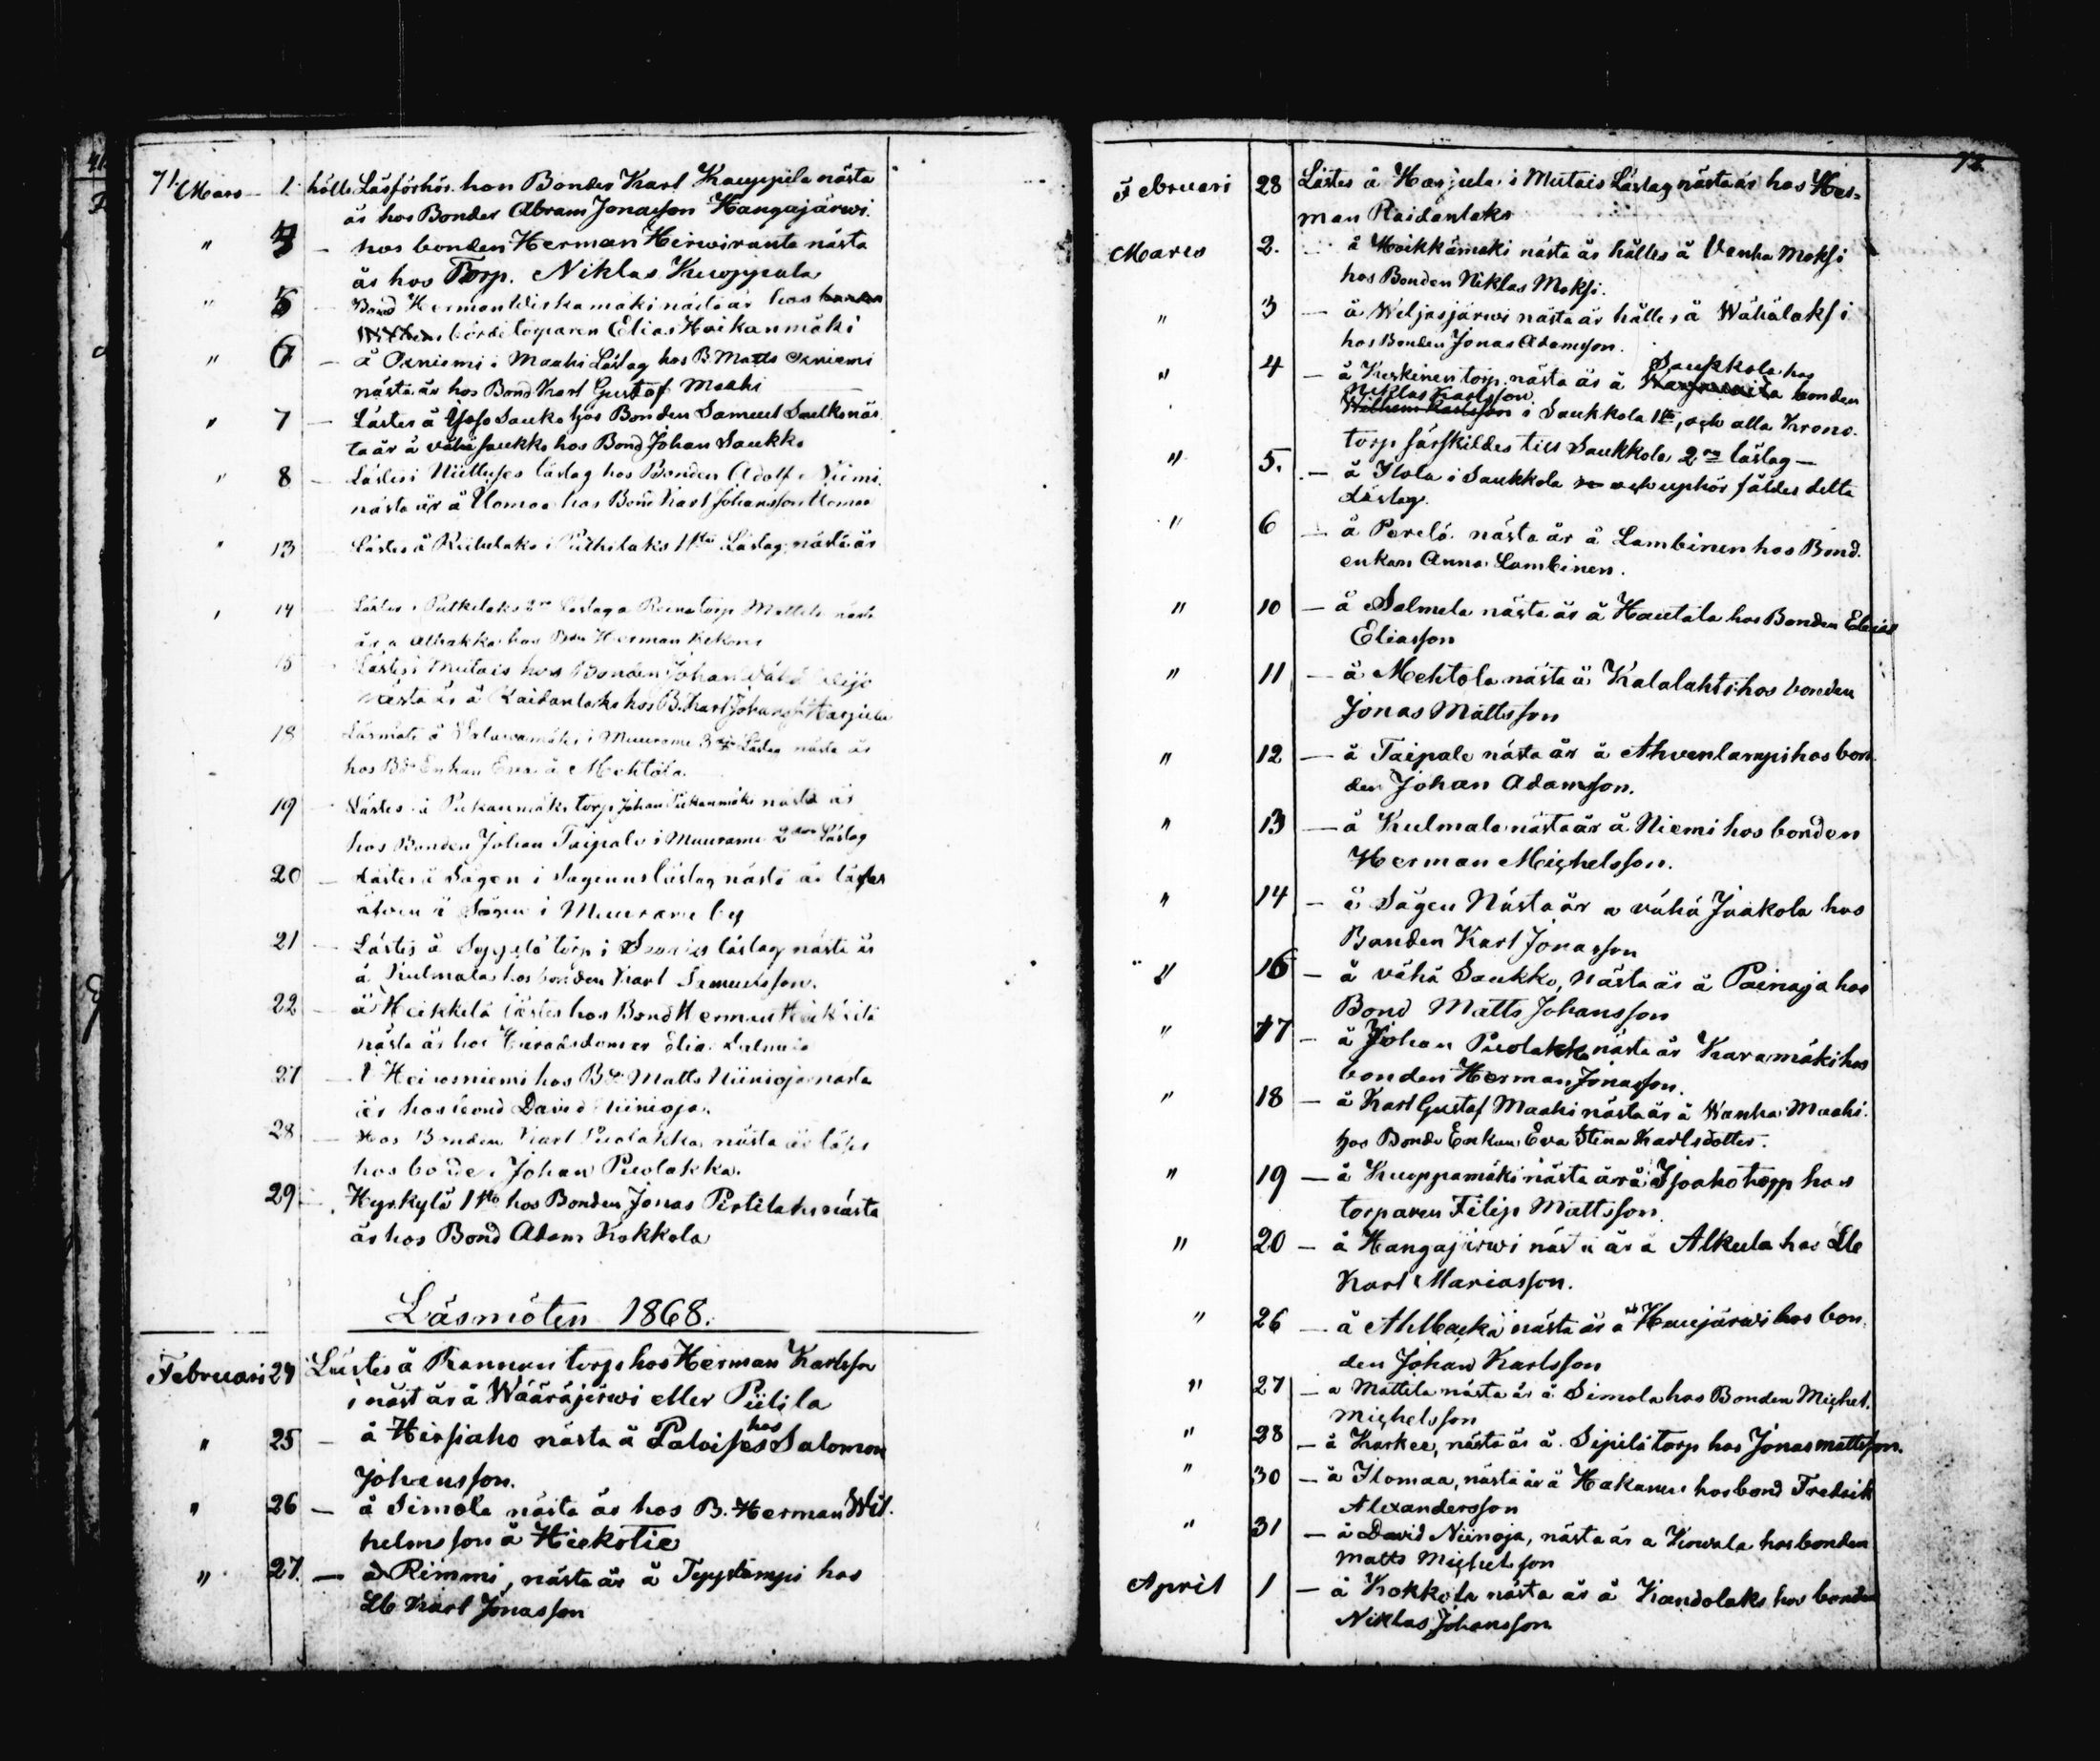 71.
Mars 1. hölls Läsförhör hon Bonden Karl Kauppila nästa
år hos Bonden Abram Jonasson Hangajärwi.
" 3 – hos bonden Herman Hirwiranta nästa
år hos Torp. Niklas Kuoppala
" 5 – Bond Herman nästa år hos
torparen Elias Haikanmäki
" 6 – å Oxniemi i Maahi Läslag hos B. Matts Oxniemi
nästa år hos Bond Karl Gustaf Maahi
" 7 – Lästes å Ijoso Sauko hos Bonden Samuel Saukko näs
ta år å vähä Saukko hos Bond Johan Saukko
" 8 – Lästes i läslag hos Bonden Adolf Niemi
nästa år å Ilomaa hos Bond Karl Johansson Ilomaa
" 13 Lästes å i 1sta Läslag nästa år
" 14 Lästes i 2ra läslag a torp Mattila nästa
år a hos Bdn Herman Kekonen
15 Lästes i Mutais hos Bonden Johan
nästa år å Raidanlaks hos B. Karl Johansf Harjula
18 Läsmöte å i Muurame 3dje Läslag nästa år
hos Bde Enkan Eva å Mehtola
19 Lästes å Piekanmäki torp Johan Piekanmäki nästa år
hos Bonden Johan Taipale i Muurame 2dra Läslag
20 – Lästes å Sågen i Sagenus läslag nästa år läses
även å Sågen i Muurame by
21 – Lästes å Seppälä torp i läslag nästa år
å Kulmala hos bonden Karl Samuelsson.
22 – å Heikkilä lästes hos Bond Herman Heikkilä
nästa år hos Häradsdomer Elia
27 – å Heinosniemi hos Bd Matts Niinioja nästa
år hos bond David Niinioja.
28 – Hos Bonden Karl Puolakka nästa år läses
hos bonde Johan Puolakka.
29 – Hyrkylä 1sta hos Bonden Jonas Pirtilahs nästa
år hos Bond Adam Kokkola
Läsmöten 1868.
Februari 24 Lästes å Rannan torp hos Herman Karlsson
näst år å Wääräjärwi eller Piilila
" 25 – å Hirsiaho nästa å Paloises hos Salomon
Johansson.
" 26 – å Simola nästa år hos B. Herman Wil-
helmsson å Hiekotie
" 27. – å Rimmi, nästa år å Tyyslampi hos
Lb Karl Jonasson
72.
Februari 28 Lästes å Harjula i Mutais Läslag nästa år hos Her-
man Raidanlaks
Mares 2. å Haikkämäki nästa år hålles å Vanha Moksi
hos Bonden Niklas Moksi.
" 3 – å Weljasjärwi nästa år hålles å Wähälaksi
hos Bonden Jonas Adamsson.
" 4 – å Keskinen torp. nästa år å Saukkola hos bonden
Niklas Karlsson i Saukkola 1sta, och alla Krono-
torp särskildes till Saukkola 2ra läslag –
" 5. – å Ilola i Saukkola och uphör såldes detta
Läslag.
" 6 – å Perälä nästa år å Lambinen hos Bond-
enkan Anna Lambinen.
" 10 – å Salmela nästa år å Hautala hos Bonden Elias
Eliasson
" 11 – å Mehtola nästa å Kalalahti hos bonden
Jonas Mattsson
" 12 – å Taipale nästa år å Ahvenlampi hos bon-
den Johan Adamsson.
" 13 – å Kulmala nästa år å Niemi hos bonden
Herman Michelsson.
" 14 – å Sågen Nästa år a vähä Jaakola hos
Bonden Karl Jonasson
" 16 – å vähä Saukko, Nästa år å Painaja hos
Bond Matts Johansson
" 17 – å Johan Puolakka nästa år Karamäki hos
bonden Herman Jonasson.
" 18 – å Karl Gustaf Maahi nästa år å Wanha Maahi
hos Bonde Enkan Eva Stina Karlsdotter.
" 19 – å Kuoppamäki nästa år å Isoaho torp hos
torparen Filip Mattsson.
" 20 – å Hangajärwi nästa år å Alkula hos Lb
Karl Mariasson.
" 26 – å Ahlbacka nästa år å Haujärwi hos bon-
den Johan Karlsson
" 27 – a Mattila nästa år å Simola hos Bonden Michel
Michelsson
" 28 – å Karkee, nästa år å Sipilä torp hos Jonas Mattsson.
" 30 – å Ilomaa, nästa år å Hakanen hos bond Fredrik
Alexandersson
" 31 – å David Niinoja, nästa år a Kiowala hos bonden
Matts Michelsson
April 1 – å Kokkola nästa år å Kandolaks hos bonden
Niklas Johansson